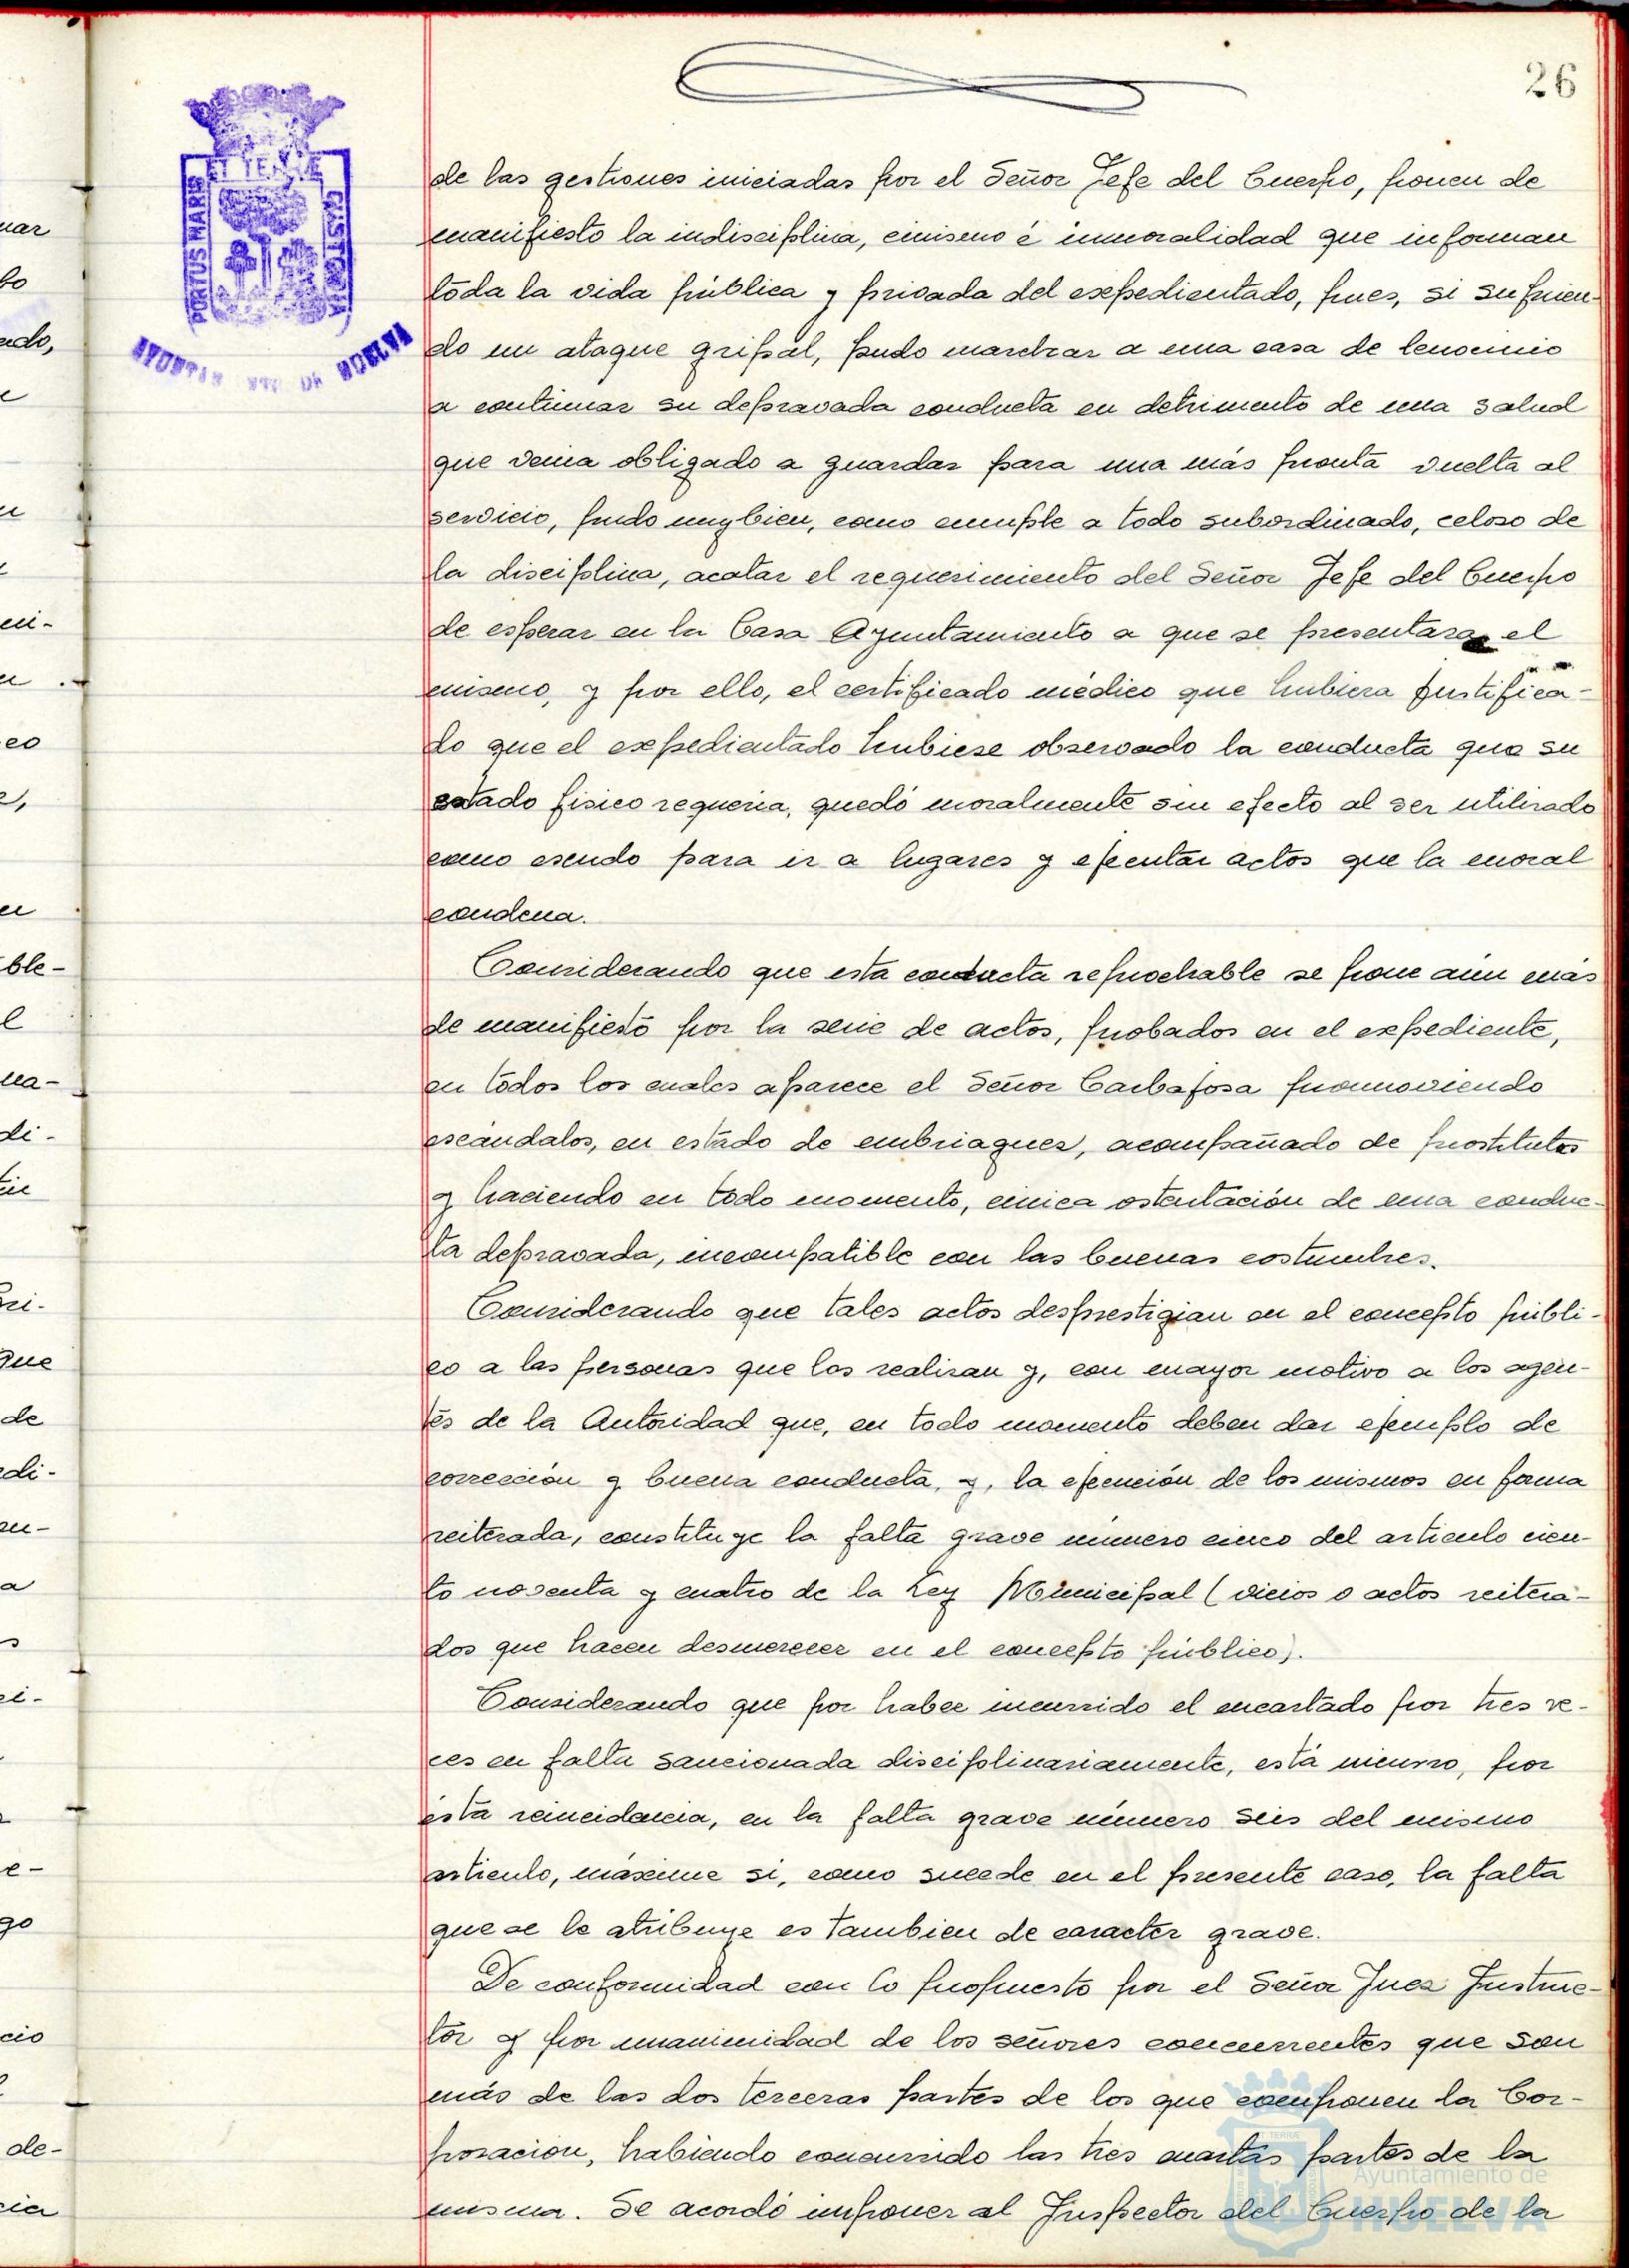 26
ET TERRAE
PORTUS MARIS
CUSTODIA
AYUNTAMIENTO DE HUELVA
de las gestiones iniciadas por el Señor Jefe del Cuerpo, ponen de
manifiesto la indisciplina, cinismo é inmoralidad que informan
toda la vida pública y privada del expedientado, pues, si sufrien-
do un ataque gripal, pudo marchar a una casa de lenocinio
a continuar su depravada conducta en detrimento de una salud
que venia obligado a guardar para una más pronta vuelta al
servicio, pudo muy bien, como cumple a todo subordinado, celoso de
la disciplina, acatar el requerimiento del Señor Jefe del Cuerpo
de esperar en la Casa Ayuntamiento a que se presentara el
mismo, y por ello, el certificado médico que hubiera justifica-
do que el expedientado hubiese observado la conducta que su
estado fisico requeria, quedó moralmente sin efecto al ser utilizado
como escudo para ir a lugares y ejecutar actos que la moral
condena.
Considerando que esta conducta reprochable se pone aún más
de manifiesto por la serie de actos, probados en el expediente,
en todos los cuales aparece el Señor Carbajosa promoviendo
escándalos, en estado de embriaguez, acompañado de prostitutas
y haciendo en todo momento, cínica ostentación de una conduc-
ta depravada, incompatible con las buenas costumbres.
Considerando que tales actos desprestigian en el concepto públi-
co a las personas que los realizan y, con mayor motivo a los agen-
tes de la Autoridad que, en todo momento deben dar ejemplo de
corrección y buena conducta, y, la ejecución de los mismos en forma
reiterada, constituye la falta grave número cinco del articulo cien-
to noventa y cuatro de la Ley Municipal (vicios o actos reitera-
dos que hacen desmerecer en el concepto público).
Considerando que por haber incurrido el encartado por tres ve-
ces en falta sancionada disciplinariamente, está incurso, por
ésta reincidencia, en la falta grave número seis del mismo
articulo, máxime si, como sucede en el presente caso, la falta
que se le atribuye es tambien de caracter grave.
De conformidad con lo propuesto por el Señor Juez Instruc-
tor y por unanimidad de los señores concurrentes que son
más de las dos terceras partes de los que componen la Cor-
poracion, habiendo concurrido las tres cuartas partes de la
misma. Se acordó imponer al Inspector del Cuerpo de la
Ayuntamiento de
HUELVA